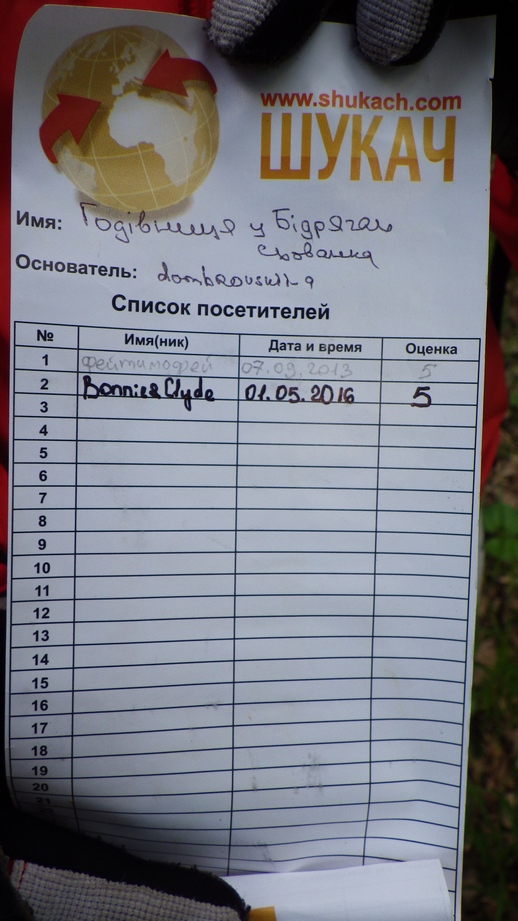 www.shukach.com
ШУКАЧ
Имя: Годівниця у Бідрягах
схованка
Основатель: dombrovskiha
Список посетителей
№ Имя(ник) Дата и время Оценка
1 фейтимофей 07.09.2013 5
2 Bonnie&Clyde 01.05.2016 5
3
4
5
6
7
8
9
10
11
12
13
14
15
16
17
18
19
20
21